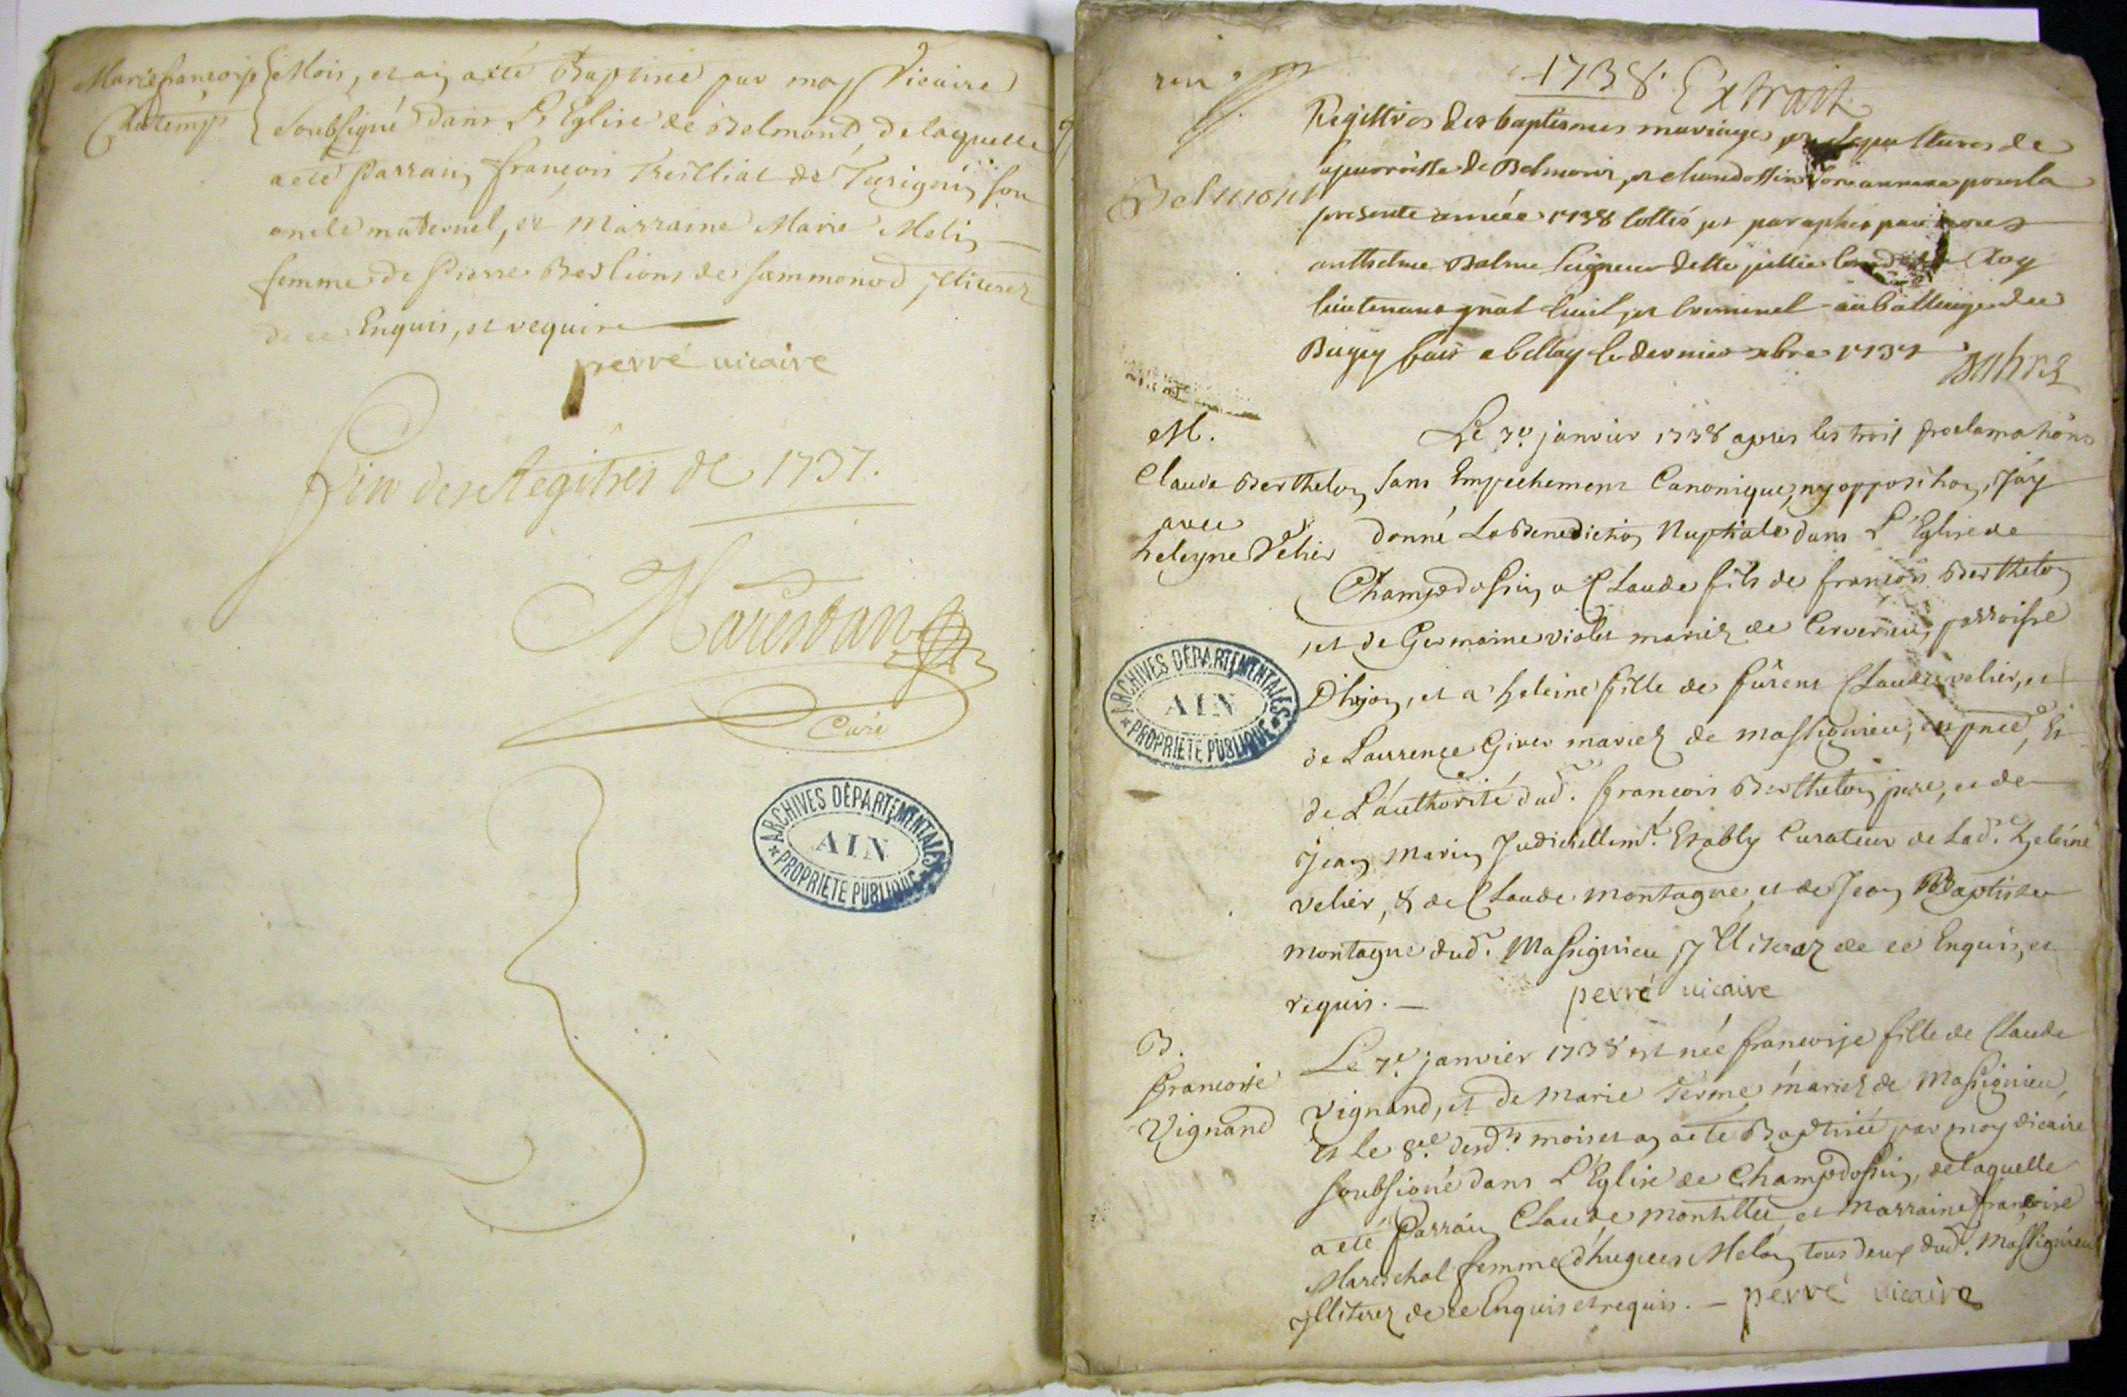 Marie françoise Mois, et an a eté Baptisée par moy Vicaire
Chatemps Soubsigné dans L'Eglise de Belmont, de laquelle
a eté Parrain françois Treilliat de Turignin son
oncle maternel, et Marraine Marie Melin
femme de Pierre Berlions de sammonod, Illiterez
de ce Enquis, et requis
perré vicaire
fin des Registres de 1737.
Marestan
Curé
ARCHIVES DÉPARTEMENTALES
AIN
* PROPRIÉTÉ PUBLIQUE *
1738. Extrait
Registres des baptesmes mariages et sepultures de
la parroisse de Belmont, et chandossin son annexe pour la
Belmont
presente année 1738 cottés et paraphés par nous
anthelme Balme Seigneur de Roy
lieutenant gnal Civil et Criminel au balliage du
Bugey fait a bellay le dernier xbre 1737
M.
Claude Berthelon
avec
heleyne Velier
Le 7e. janvier 1738 apres les trois proclamations
Sans Empechement Canonique, ny opposition, J'ay
donné La Benediction Nuptiale dans L'Eglise de
Champdossin a Claude fils de françois Berthelon
et de Germaine violet mariez de Cerverieu, parroisse
D'hyon, et a heleine fille de fûrent Claude velier, et
de Laurence Giver mariez de Massignieu, en pnce, Et
de L'authorité dud. françois Berthelon pere, et de
Jean Marin Judiciellemt. Etably Curateur de Lad. heleine
velier, & de Claude Montagne, et de Jean Baptiste
Montagne dud. Massignieu, Illiterez de ce Enquis, et
requis. — perré vicaire
ARCHIVES DÉPARTEMENTALES
AIN
* PROPRIÉTÉ PUBLIQUE *
B.
francoise
Vignand
Le 7e. janvier 1738 est née francoise fille de Claude
Vignand, et de Marie Terme mariez de Massignieu,
Et le 8e. desd. mois et an a eté Baptisée par moy vicaire
soubsigné dans L'Eglise de Champdossin, de laquelle
a eté Parrain Claude Montillet, et Marraine francoise
Mareschal femme d'hugues Melon tous deux dud. Massignieu
Illiterez de ce Enquis et requis. — perré vicaire